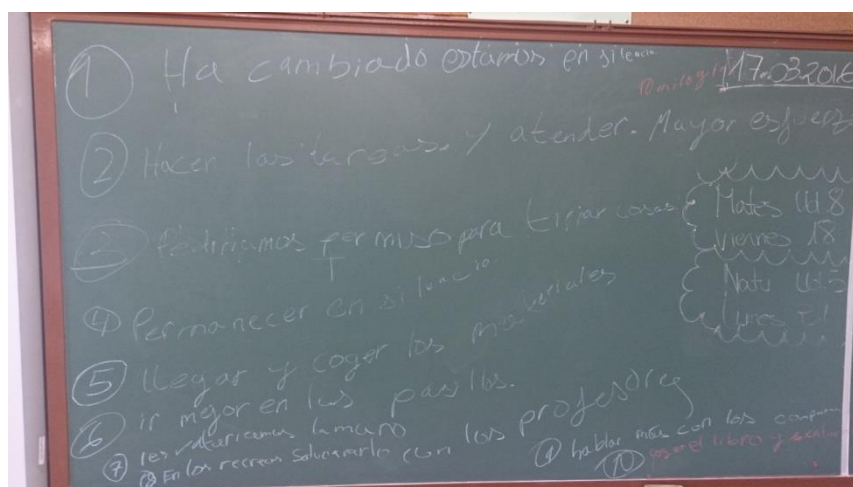 ① Ha cambiado estamos en silencio
17-03-2016
② Hacer las tareas. Y atender. Mayor esfuerzo
③ Pediríamos permiso para tirar cosas
Mates U.8
Viernes 18
④ Permanecer en silencio
Natu
Lunes 21
⑤ llegar y coger los materiales
⑥ ir mejor en los pasillos.
⑦ la mano
⑧ En los recreos solucionarlo con los profesores
⑨ hablar más con los
⑩ el libro y